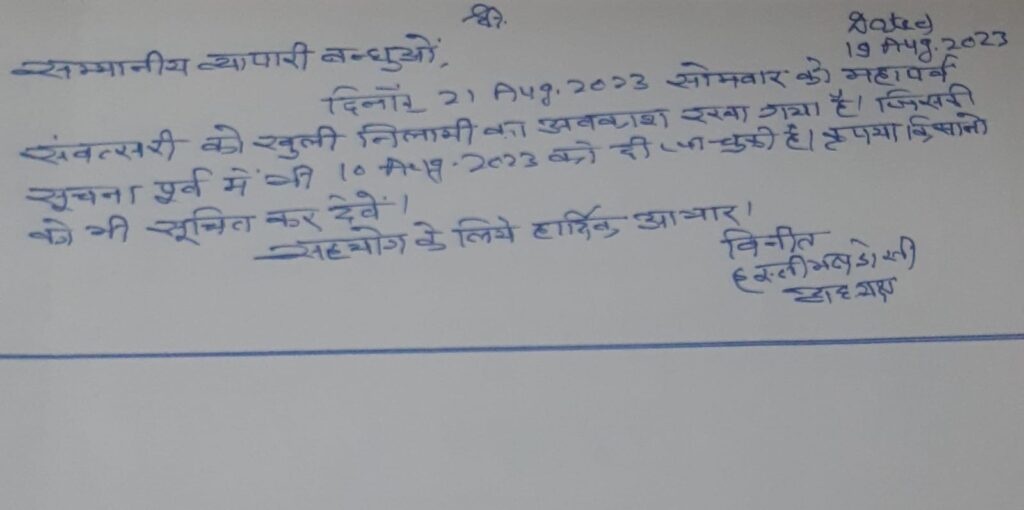 श्री.
Dated
19 Aug. 2023
सम्मानीय व्यापारी बन्धुओं,
दिनाँक 21 Aug. 2023 सोमवार को महापर्व
संवत्सरी को खुली निलामी का अवकाश रखा गया है। जिसकी
सूचना पूर्व में भी 10 Aug. 2023 को दी जा चुकी है। कृपया किसानो
को भी सूचित कर देवें।
सहयोग के लिये हार्दिक आभार।
विनीत
डोसी
अध्यक्ष